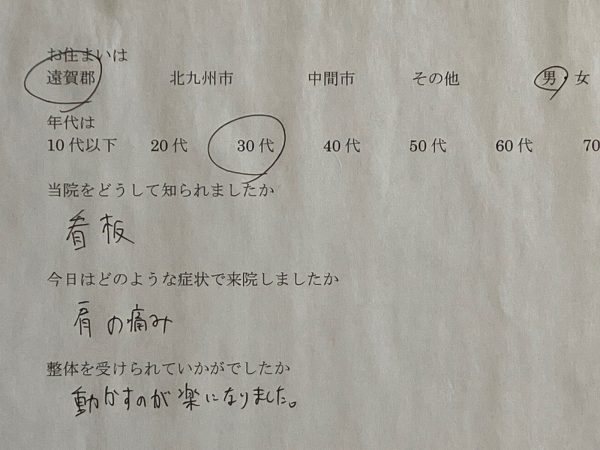 お住まいは
遠賀郡 北九州市 中間市 その他 男・女
年代は
10代以下 20代 30代 40代 50代 60代 70
当院をどうして知られましたか
看板
今日はどのような症状で来院しましたか
肩の痛み
整体を受けられていかがでしたか
動かすのが楽になりました。